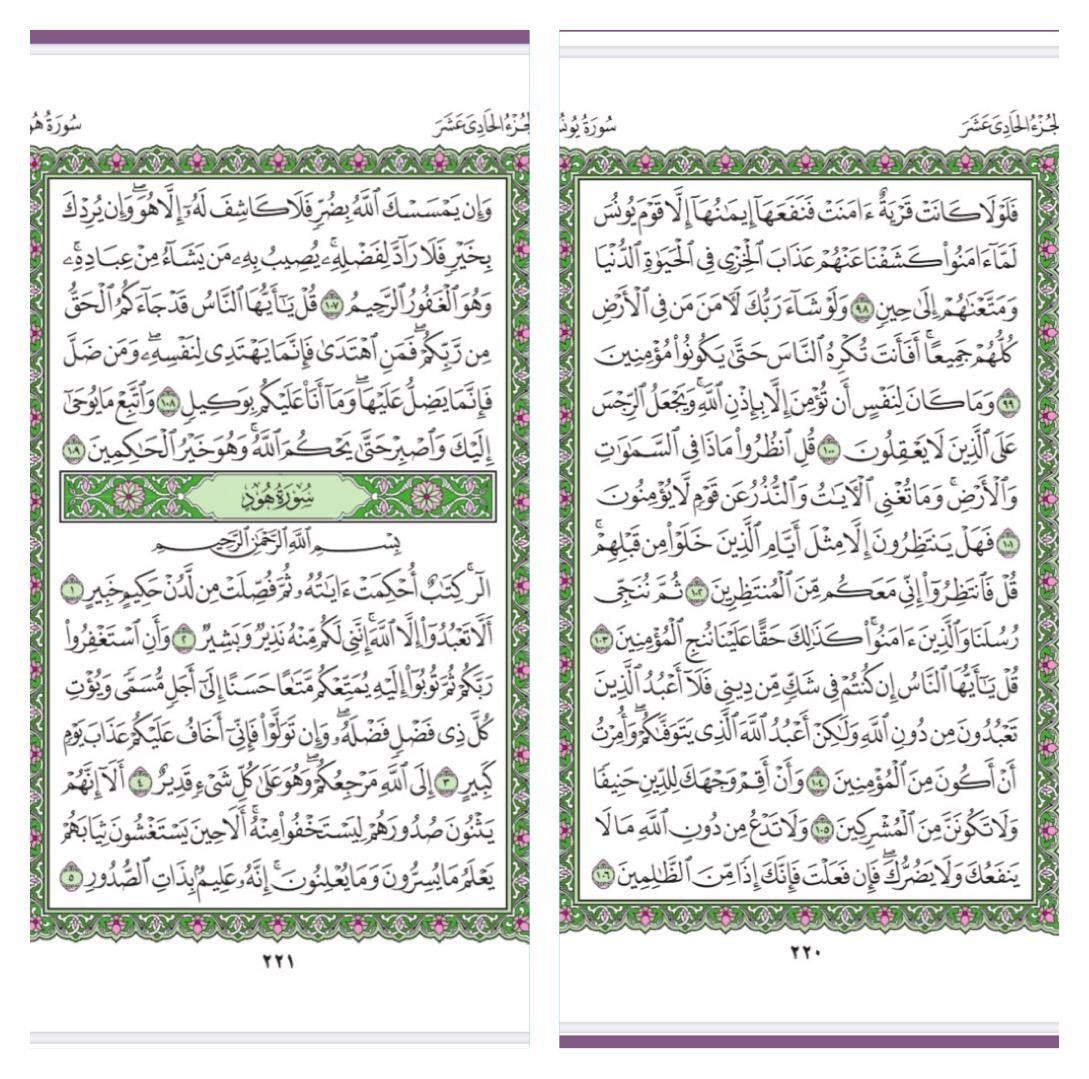 الجُزْءُ الحَادِىَ عَشَرَ
سُورَةُ يُونُ
فَلَوْلَا كَانَتْ قَرْيَةٌ ءَامَنَتْ فَنَفَعَهَآ إِيمَـٰنُهَآ إِلَّا قَوْمَ يُونُسَ
لَمَّآ ءَامَنُوا۟ كَشَفْنَا عَنْهُمْ عَذَابَ ٱلْخِزْىِ فِى ٱلْحَيَوٰةِ ٱلدُّنْيَا
وَمَتَّعْنَـٰهُمْ إِلَىٰ حِينٍ ٩٨ وَلَوْ شَآءَ رَبُّكَ لَـَٔامَنَ مَن فِى ٱلْأَرْضِ
كُلُّهُمْ جَمِيعًا ۚ أَفَأَنتَ تُكْرِهُ ٱلنَّاسَ حَتَّىٰ يَكُونُوا۟ مُؤْمِنِينَ
٩٩ وَمَا كَانَ لِنَفْسٍ أَن تُؤْمِنَ إِلَّا بِإِذْنِ ٱللَّهِ ۚ وَيَجْعَلُ ٱلرِّجْسَ
عَلَى ٱلَّذِينَ لَا يَعْقِلُونَ ١٠٠ قُلِ ٱنظُرُوا۟ مَاذَا فِى ٱلسَّمَـٰوَٰتِ
وَٱلْأَرْضِ ۚ وَمَا تُغْنِى ٱلْـَٔايَـٰتُ وَٱلنُّذُرُ عَن قَوْمٍ لَّا يُؤْمِنُونَ
١٠١ فَهَلْ يَنتَظِرُونَ إِلَّا مِثْلَ أَيَّامِ ٱلَّذِينَ خَلَوْا۟ مِن قَبْلِهِمْ ۚ
قُلْ فَٱنتَظِرُوٓا۟ إِنِّى مَعَكُم مِّنَ ٱلْمُنتَظِرِينَ ١٠٢ ثُمَّ نُنَجِّى
رُسُلَنَا وَٱلَّذِينَ ءَامَنُوا۟ ۚ كَذَٰلِكَ حَقًّا عَلَيْنَا نُنجِ ٱلْمُؤْمِنِينَ ١٠٣
قُلْ يَـٰٓأَيُّهَا ٱلنَّاسُ إِن كُنتُمْ فِى شَكٍّ مِّن دِينِى فَلَآ أَعْبُدُ ٱلَّذِينَ
تَعْبُدُونَ مِن دُونِ ٱللَّهِ وَلَـٰكِنْ أَعْبُدُ ٱللَّهَ ٱلَّذِى يَتَوَفَّىٰكُمْ ۖ وَأُمِرْتُ
أَنْ أَكُونَ مِنَ ٱلْمُؤْمِنِينَ ١٠٤ وَأَنْ أَقِمْ وَجْهَكَ لِلدِّينِ حَنِيفًا
وَلَا تَكُونَنَّ مِنَ ٱلْمُشْرِكِينَ ١٠٥ وَلَا تَدْعُ مِن دُونِ ٱللَّهِ مَا لَا
يَنفَعُكَ وَلَا يَضُرُّكَ ۖ فَإِن فَعَلْتَ فَإِنَّكَ إِذًا مِّنَ ٱلظَّـٰلِمِينَ ١٠٦
٢٢٠
الجُزْءُ الحَادِىَ عَشَرَ
سُورَةُ هُو
وَإِن يَمْسَسْكَ ٱللَّهُ بِضُرٍّ فَلَا كَاشِفَ لَهُۥٓ إِلَّا هُوَ ۖ وَإِن يُرِدْكَ
بِخَيْرٍ فَلَا رَآدَّ لِفَضْلِهِۦ ۚ يُصِيبُ بِهِۦ مَن يَشَآءُ مِنْ عِبَادِهِۦ ۚ
وَهُوَ ٱلْغَفُورُ ٱلرَّحِيمُ ١٠٧ قُلْ يَـٰٓأَيُّهَا ٱلنَّاسُ قَدْ جَآءَكُمُ ٱلْحَقُّ
مِن رَّبِّكُمْ ۖ فَمَنِ ٱهْتَدَىٰ فَإِنَّمَا يَهْتَدِى لِنَفْسِهِۦ ۖ وَمَن ضَلَّ
فَإِنَّمَا يَضِلُّ عَلَيْهَا ۖ وَمَآ أَنَا۠ عَلَيْكُم بِوَكِيلٍ ١٠٨ وَٱتَّبِعْ مَا يُوحَىٰٓ
إِلَيْكَ وَٱصْبِرْ حَتَّىٰ يَحْكُمَ ٱللَّهُ ۚ وَهُوَ خَيْرُ ٱلْحَـٰكِمِينَ ١٠٩
سُورَةُ هُودٍ
بِسْمِ ٱللَّهِ ٱلرَّحْمَـٰنِ ٱلرَّحِيمِ
الٓر ۚ كِتَـٰبٌ أُحْكِمَتْ ءَايَـٰتُهُۥ ثُمَّ فُصِّلَتْ مِن لَّدُنْ حَكِيمٍ خَبِيرٍ ١
أَلَّا تَعْبُدُوٓا۟ إِلَّا ٱللَّهَ ۚ إِنَّنِى لَكُم مِّنْهُ نَذِيرٌ وَبَشِيرٌ ٢ وَأَنِ ٱسْتَغْفِرُوا۟
رَبَّكُمْ ثُمَّ تُوبُوٓا۟ إِلَيْهِ يُمَتِّعْكُم مَّتَـٰعًا حَسَنًا إِلَىٰٓ أَجَلٍ مُّسَمًّى وَيُؤْتِ
كُلَّ ذِى فَضْلٍ فَضْلَهُۥ ۖ وَإِن تَوَلَّوْا۟ فَإِنِّىٓ أَخَافُ عَلَيْكُمْ عَذَابَ يَوْمٍ
كَبِيرٍ ٣ إِلَى ٱللَّهِ مَرْجِعُكُمْ ۖ وَهُوَ عَلَىٰ كُلِّ شَىْءٍ قَدِيرٌ ٤ أَلَآ إِنَّهُمْ
يَثْنُونَ صُدُورَهُمْ لِيَسْتَخْفُوا۟ مِنْهُ ۚ أَلَا حِينَ يَسْتَغْشُونَ ثِيَابَهُمْ
يَعْلَمُ مَا يُسِرُّونَ وَمَا يُعْلِنُونَ ۚ إِنَّهُۥ عَلِيمٌۢ بِذَاتِ ٱلصُّدُورِ ٥
٢٢١